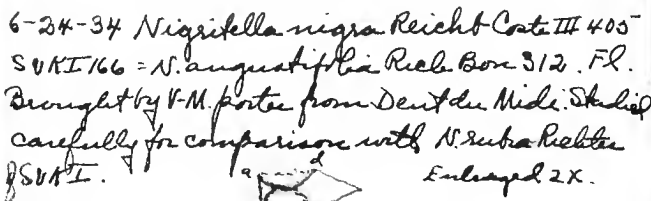 6-24-34 Nigritella nigra Reichb Coste III 405
SVKI 166 = N. angustifolia Rich Bon 312. Fl.
Brought by V-M. porter from Dent du Midi. Studied
carefully for comparison with N. rubra Richter
of SVKI.
a d
Enlarged 2X.